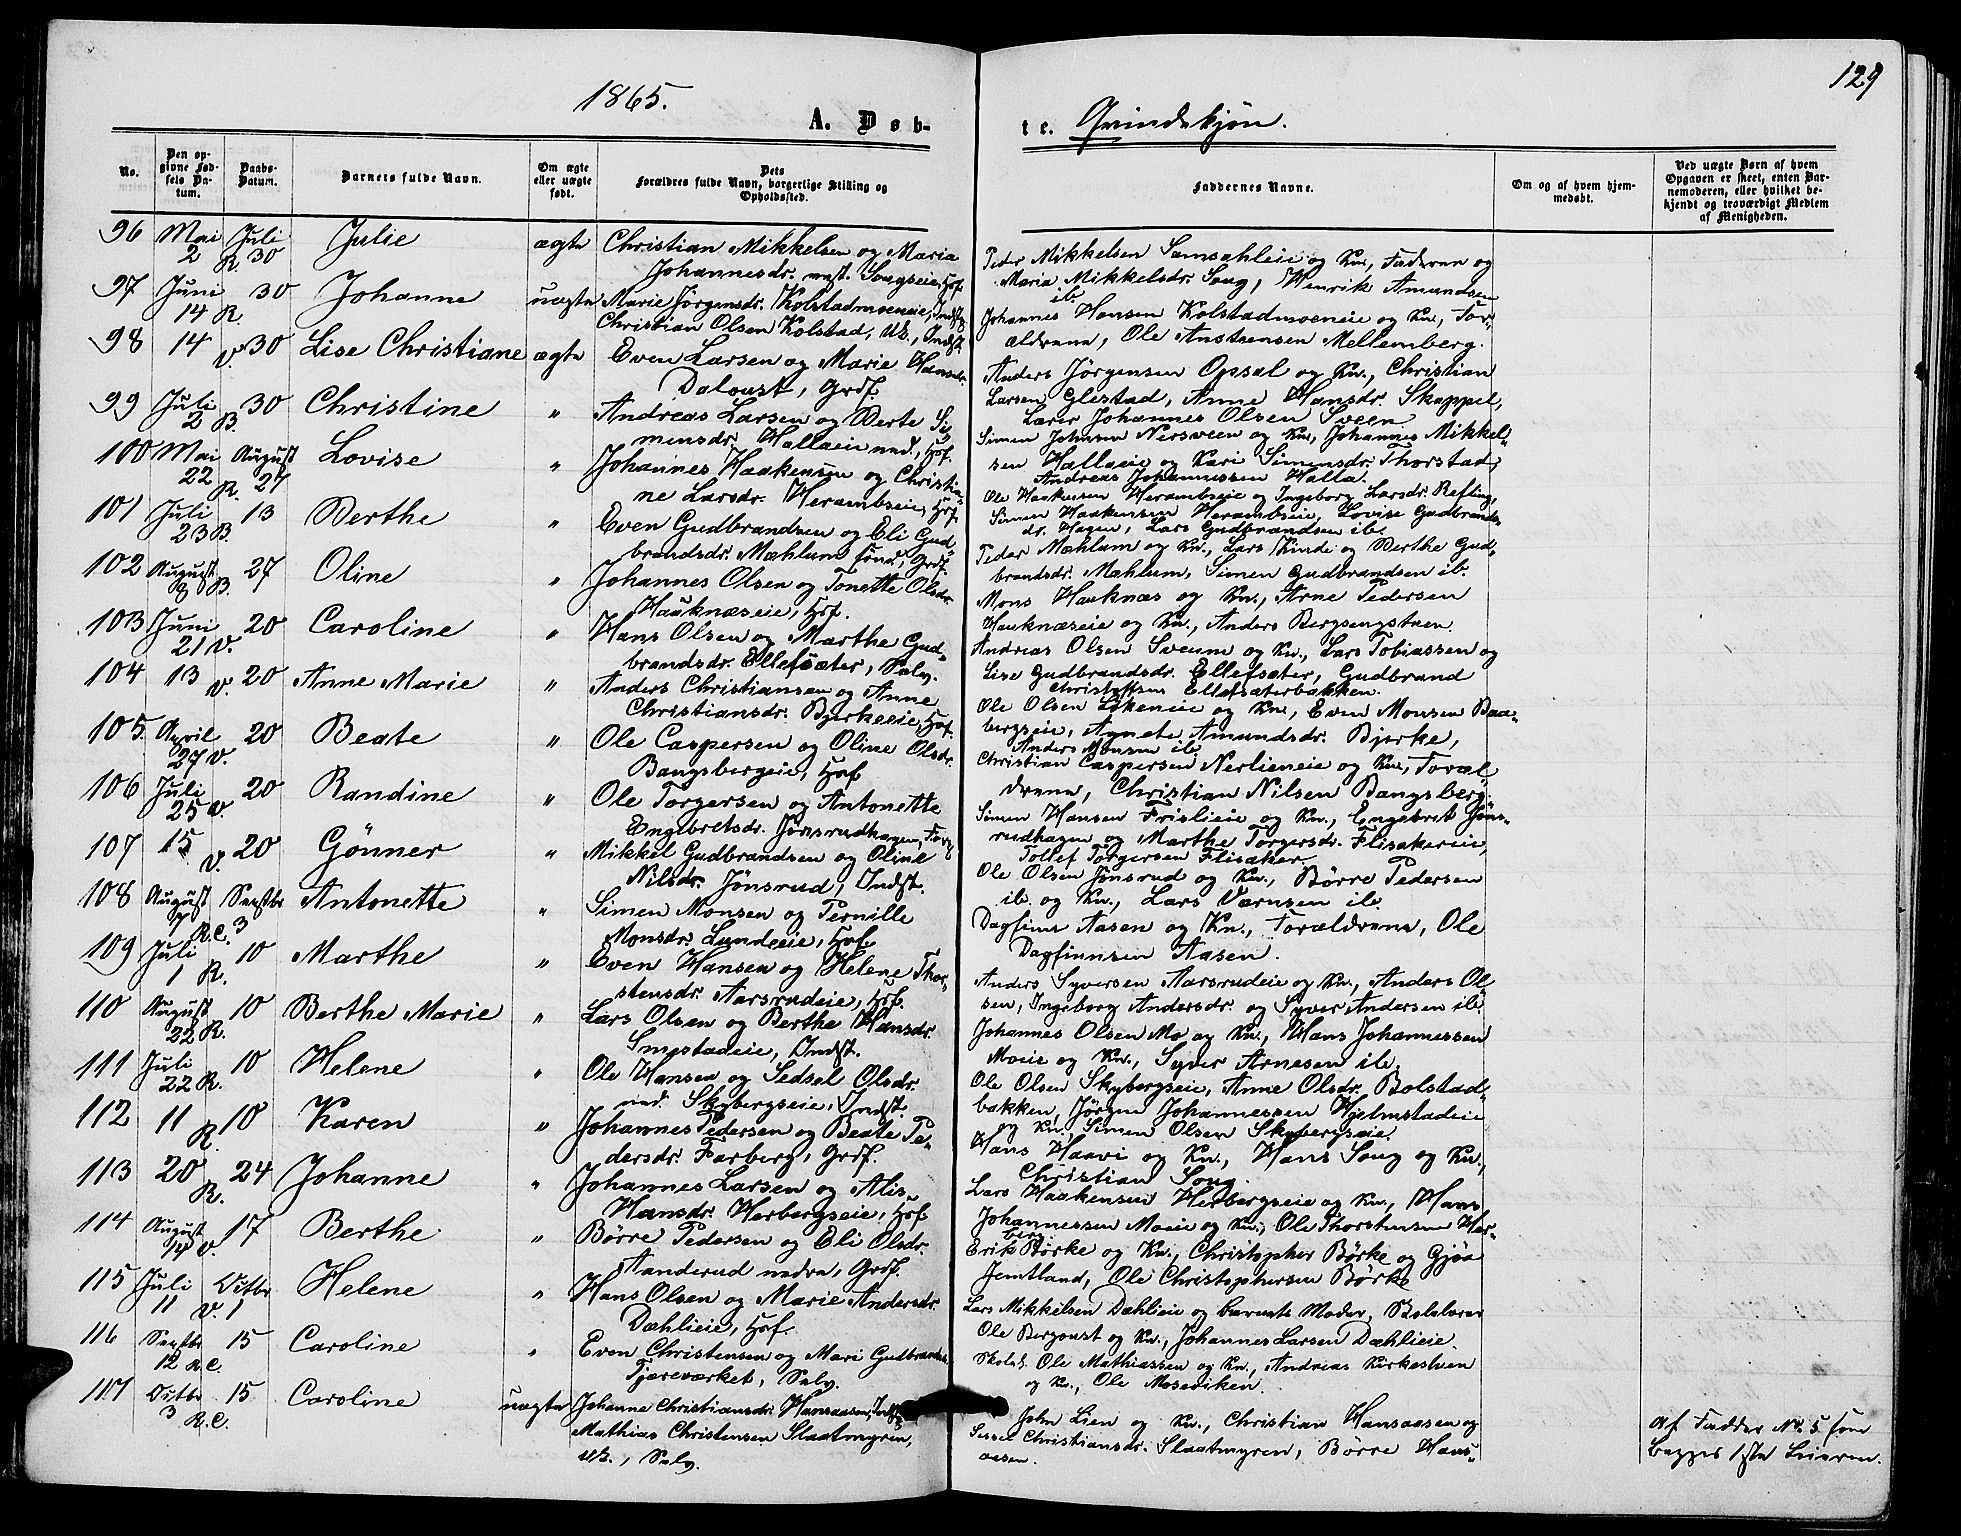 129
1865.
A. Døb-
te. Qvindekjøn.
No.
Den opgivne Fødsels Datum.
Daabs-Datum.
Barnets fulde Navn.
Om ægte eller uægte født.
Dets Forældres fulde Navn, borgerlige Stilling og Opholdssted.
Faddernes Navne.
Om og af hvem hjemmedøbt.
Ved uægte Børn af hvem Opgaven er skeet, enten Barnemoderen, eller hvilket bekjendt og troværdigt Medlem af Menigheden.
96 Mai 2 R. Juli 30 Julie ægte Christian Mikkelsen og Maria
Johannesdr. nest. Sougseie, Hof.
Peder Mikkelsen Samsahleie og Kn., Faderen og
Maria Mikkelsdr. Soug, Henrik Amundsen
ib.
97 Juni 14 R. 30 Johanne uægte Marie Jørgensdr. Kolstadmoeneie, Indst. og
Christian Olsen Kolstad, Uk., Indst.
Johannes Hansen Kolstadmoeneie og Kn., For-
ældrene, Ole Anstensen Mellemberg.
98 14 V. 30 Lise Christiane ægte Even Larsen og Marie Hansdr.
Daloust, Grdf.
Anders Jørgensen Opsal og Kn., Christian
Larsen Glestad, Anne Hansdr. Skappel,
Lærer Johannes Olsen Sveen
99 Juli 2 B. 30 Christine " Andreas Larsen og Berte Si-
mensdr. Hallaeie ned., Hof.
Simen Johnsen Nersveen og Kn., Johannes Mikkel-
sen Hallaeie og Kari Simensdr. Thorstad,
Andreas Johannessen Halla.
100 Mai 22 R. August 27 Lovise " Johannes Haakensen og Christia-
ne Larsdr. Herambseie, Hof.
Ole Haakensen Herambseie og Ingeborg Larsdr. Refling,
Simen Haakensen Herambseie, Lovise Gudbrands-
dr. Hagen, Lars Gudbrandsen ib.
101 Juli 23 B. 13 Berthe " Even Gudbrandsen og Eli Gud-
brandsdr. Mæhlum søndr, Grdf.
Peder Mæhlum og Kn., Lars Kinde og Berthe Gud-
brandsdr. Mæhlum, Simen Gudbrandsen ib.
102 August 8 B. 27 Oline " Johannes Olsen og Tonette Olsdr.
Hauknæseie, Hof.
Mons Hauknæs og Kn., Arne Pedersen
Hauknæseie og Kn., Anders Bergsengstuen.
103 Juni 21 V. 20 Caroline " Hans Olsen og Marthe Gud-
brandsdr. Ellefsæter, Selv.
Andreas Olsen Sveum og Kn., Lars Tobiassen og
Lise Gudbrandsdr. Ellefsæter, Gudbrand
Christoffersen Ellefsæterbakken.
104 13 V. 20 Anne Marie " Anders Christiansen og Anne
Christiansdr. Bjerkeeie, Hof.
Ole Olsen Lykeneie og Kn., Even Monsen Baa-
bergseie, Agnete Amundsdr. Bjerke,
Anders Monsen ib.
105 April 27 V. 20 Beate " Ole Caspersen og Oline Olsdr.
Bangsbergeie, Hof.
Christian Caspersen Nerlieneie og Kn., Foræl-
drene, Christian Nilsen Bangsberg.
106 Juli 25 V. 20 Randine " Ole Torgersen og Antonette
Engebretsdr. Jønsrudhagen, Forp.
Simen Hansen Frislieie og Kn., Engebret Jøns-
rudhagen og Marthe Torgersdr. Flisakereie,
Tollef Torgersen Flisaker.
107 15 V. 20 Gønner " Mikkel Gudbrandsen og Oline
Nilsdr. Jønsrud, Indst.
Ole Olsen Jønsrud og Kn., Børre Pedersen
ib. og Kn., Lars Værnsen ib.
108 August 7 R.C. Septbr 3 Antonette " Simen Monsen og Pernille
Monsdr. Lundeeie, Hof.
Dagfinn Aasen og Kn., Forældrene, Ole
Dagfinnsen Aasen.
109 Juli 1 R. 10 Marthe " Even Hansen og Helene Thor-
stensdr. Aarsrudeie, Hof.
Anders Syversen Aarsrudeie og Kn., Anders Ol-
sen, Ingeborg Andersdr. og Syver Andersen ib.
110 August 22 R. 10 Berthe Marie " Lars Olsen og Berthe Hansdr.
Smestadeie, Indst.
Johannes Olsen Mo og Kn., Hans Johannessen
Moeie og Kn., Syver Arnesen ib.
111 Juli 22 R. 10 Helene " Ole Hansen og Sedsel Olsdr.
ned. Skybergseie, Indst.
Ole Olsen Skybergseie, Anne Olsdr. Bolstad-
bakken, Jørgen Johannessen Hjelmstadeie
og Kn., Simen Olsen Skybergseie.
112 11 R. 10 Karen " Johannes Pedersen og Beate Pe-
dersdr. Farberg, Grdf.
Hans Haavi og Kn., Hans Soug og Kn.,
Christian Soug.
113 20 R. 24 Johanne " Johannes Larsen og Alis
Hansdr. Herbergseie, Hof.
Lars Haakensen Herbergseie og Kn., Hans
Johannessen Moeie og Kn., Ole Thorstensen Her-
berg.
114 August 14 V. 17 Berthe " Børre Pedersen og Eli Olsdr.
Aanderud nedre, Grdf.
Erik Børke og Kn., Christopher Børke og Gjøa
Jemtland, Ole Christophersen Børke
115 Juli 11 V. Octbr 1 Helene " Hans Olsen og Marie Andersdr.
Dæhlieie, Hof.
Lars Mikkelsen Dæhlieie og Barnets Moder, Skolelærer
Ole Bergoust og Kn., Johannes Larsen Dæhlieie.
116 Septbr 12 R.C. 15 Caroline " Even Christensen og Mari Gudbrandsdr.
Tjæreværket, Selv.
Skolel. Ole Mathiassen og Kn., Andreas Kirkestuen
og Kn., Ole Mosediken.
117 Octbr 3 R.C. 15 Caroline uægte Johanne Christiansdr. Hansaasen, Indst. og
Mathias Christensen Slaatmyren,
Uk., Selv.
John Lien og Kn., Christian Hansaasen og
Sissel Christiansdr. Slaatmyren, Børre Hans-
aasen.
Af Fadder No. 5 som
Begges 1ste Leieren.